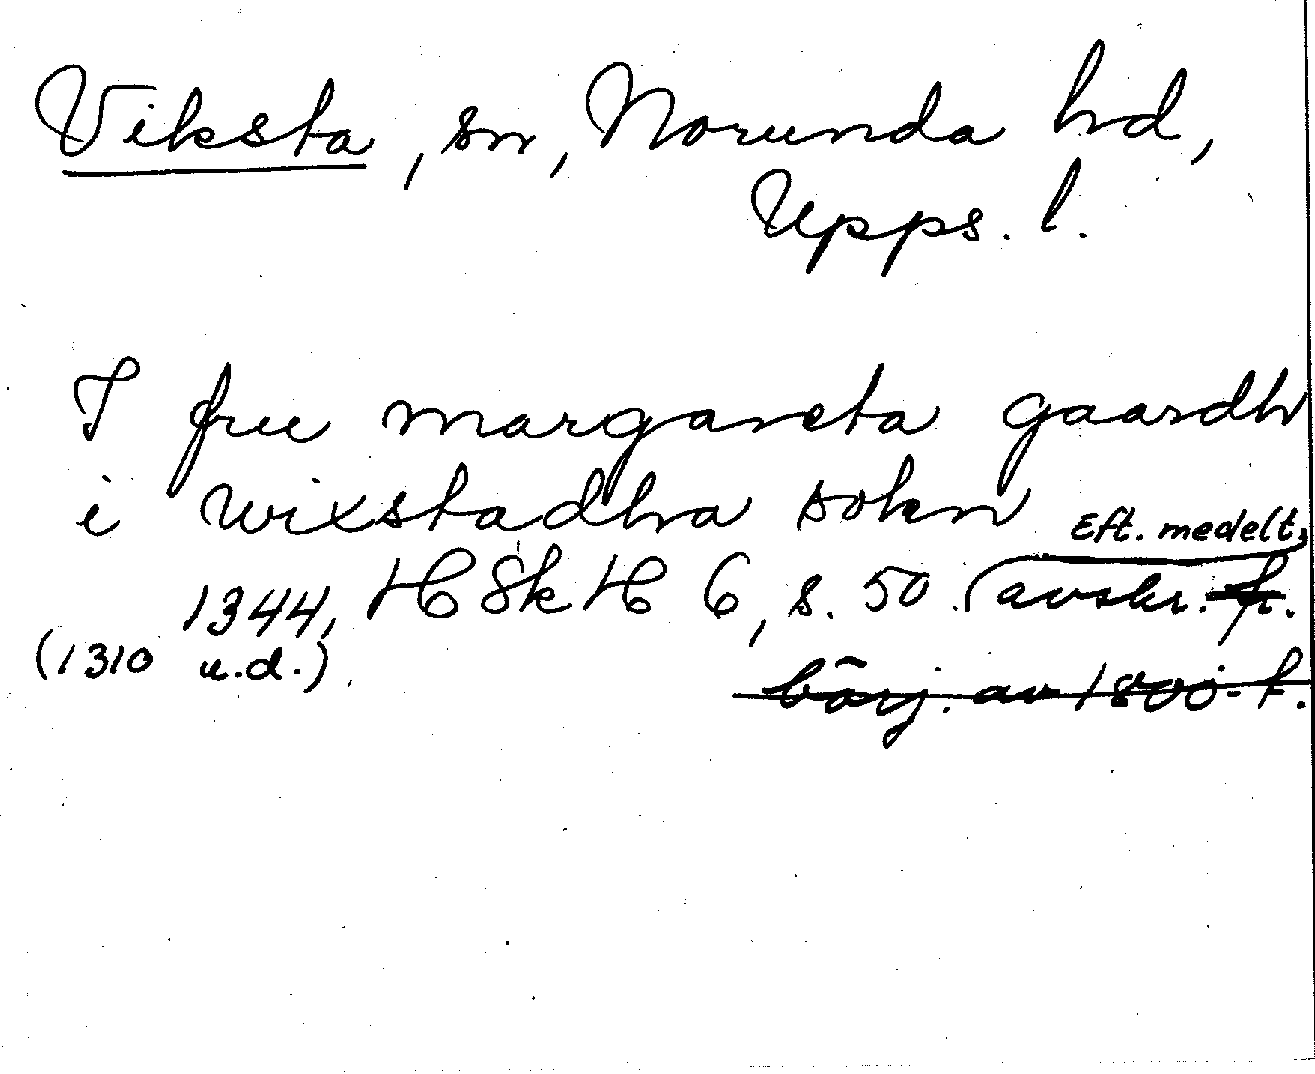 Viksta, sn, Norunda hd,
Upps. l.
I frue margareta gaardh
i wixstadhra sokn Eft. medelt.
1344, H Sk H 6, s. 50. avskr. fr.
(1310 u.d.) börj. av 1800-t.